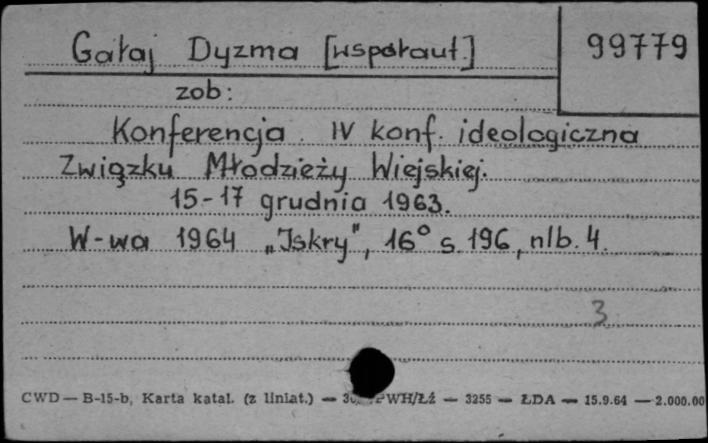 Gałaj Dyzma [współaut.] 99779
zob:
Konferencja IV konf. ideologiczna
Związku Młodzieży Wiejskiej.
15-17 grudnia 1963.
W-wa 1964 „Iskry", 16° s. 196, nlb. 4.
3
CWD — B-15-b, Karta katal. (z liniat.) — PWH/Łź — 3255 — ŁDA — 15.9.64 — 2.000.00